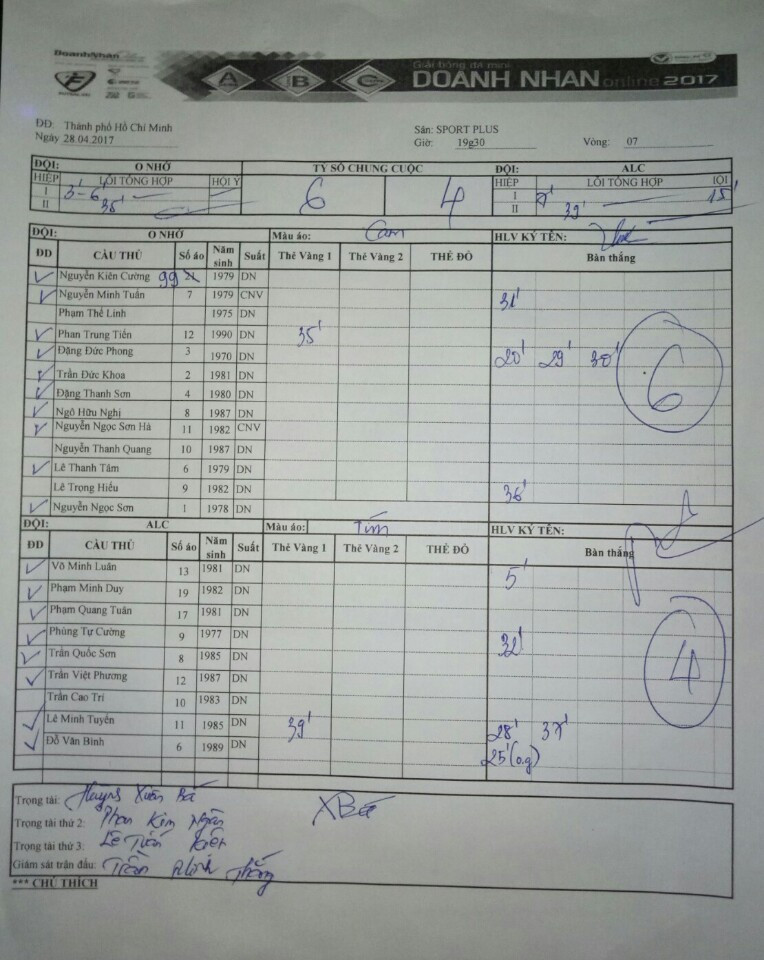 DoanhNhan
A B C
Giải bóng đá mini
DOANH NHAN online 2017
ĐĐ: Thành phố Hồ Chí Minh Sân: SPORT PLUS
Ngày 28.04.2017 Giờ: 19g30 Vòng: 07
ĐỘI: O NHỚ TỶ SỐ CHUNG CUỘC ĐỘI: ALC
HIỆP LỖI TỔNG HỢP HỘI Ý 6 4 HIỆP LỖI TỔNG HỢP
I 3' - 6' I 7' 15'
II 35' II 39'
ĐỘI: O NHỚ Màu áo: Cam HLV KÝ TÊN:
ĐD CẦU THỦ Số áo Năm sinh Suất Thẻ Vàng 1 Thẻ Vàng 2 THẺ ĐỎ Bàn thắng
Nguyễn Kiên Cường 99 1979 DN
Nguyễn Minh Tuấn 7 1979 CNV 31'
Phạm Thế Linh 1975 DN
Phan Trung Tiến 12 1990 DN 35'
Đặng Đức Phong 3 1970 DN 20' 29' 30'
Trần Đức Khoa 2 1981 DN 6
Đặng Thanh Sơn 4 1980 DN
Ngô Hữu Nghị 8 1987 DN
Nguyễn Ngọc Sơn Hà 11 1982 CNV
Nguyễn Thanh Quang 10 1987 DN
Lê Thanh Tâm 6 1979 DN
Lê Trọng Hiếu 9 1982 DN 36'
Nguyễn Ngọc Sơn 1 1978 DN
ĐỘI: ALC Màu áo: Tím HLV KÝ TÊN:
ĐD CẦU THỦ Số áo Năm sinh Suất Thẻ Vàng 1 Thẻ Vàng 2 THẺ ĐỎ Bàn thắng
Võ Minh Luân 13 1981 DN 5'
Phạm Minh Duy 19 1982 DN
Phạm Quang Tuấn 17 1981 DN
Phùng Tự Cường 9 1977 DN 32'
Trần Quốc Sơn 8 1985 DN 4
Trần Việt Phương 12 1987 DN
Trần Cao Trí 10 1983 DN
Lê Minh Tuyến 11 1985 DN 39' 28' 37'
Đỗ Văn Bình 6 1989 DN 25' (o.g)
Trọng tài: Huỳnh Xuân Bá XBá
Trọng tài thứ 2: Phan Kim Ngân
Trọng tài thứ 3: Lê Tuấn Kiên
Giám sát trận đấu: Trần Minh Thắng
*** CHÚ THÍCH